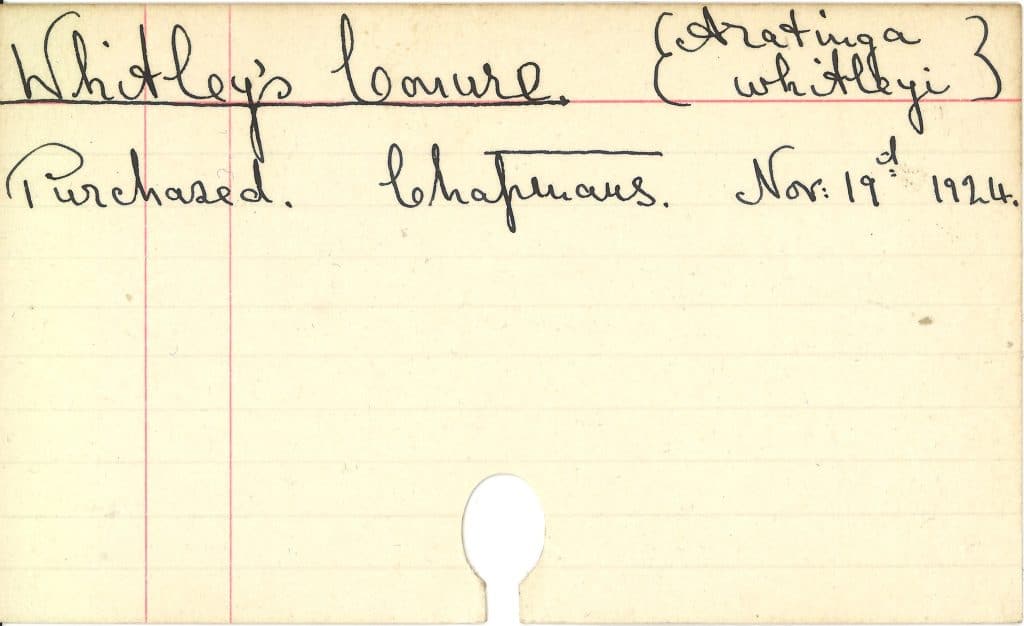 Whitley's Conure. (Aratinga
whitleyi)
Purchased. Chapmans. Nov: 19d 1924.